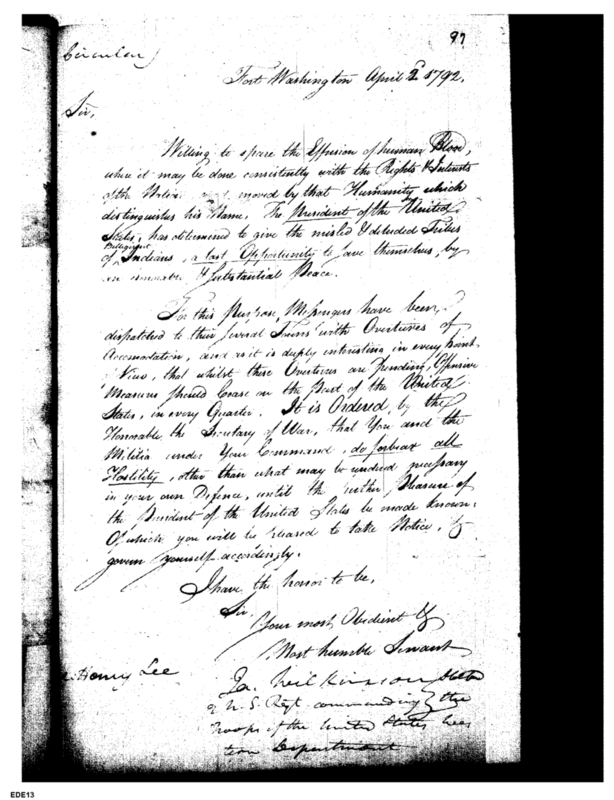 97
Circular
Fort Washington April 2d 1792.
Sir,
Willing to spare the Effusion of human Blood,
where it may be done consistently with the Rights & Interests
of the Nation and moved by that Humanity which
distinguishes his Name. The President of the United
States, has determined to give the misled & deluded Tribes
Belligerent
of Indians, a last Opportunity to save themselves, by
an & substantial Peace.
For this Purpose, Messengers have been
dispatched to their several Towns with Overtures of
Accomodation, and as it is deeply interesting, in every point
View, that whilst these Overtures are pending, Offensive
Measures should Cease on the Part of the United
States, in every Quarter. It is Ordered, by the
Honorable the Secretary of War, that You and the
Militia under Your Command, do forbear all
Hostility, other than what may be rendered necessary
in your own Defence, until the further Pleasure of
the President of the United States be made known.
Of which you will be pleased to take Notice, &
govern yourself accordingly.
I have the honor to be,
Sir,
Your most Obedient &
Most humble Servant
Henry Lee
Ja. Wilkinson
U. S. Regt. commanding the
Troops of the United States
Department
EDE13